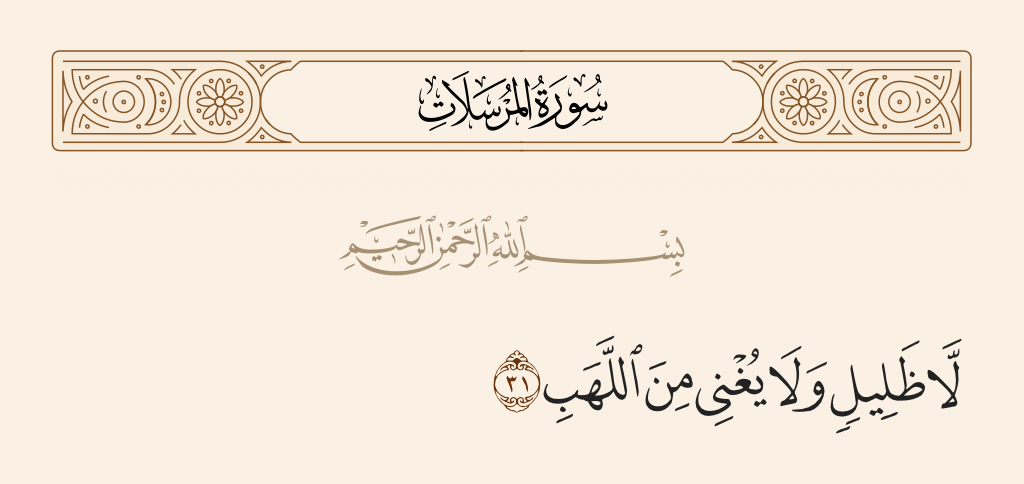 سُورَةُ المُرْسَلَاتِ
بِسْمِ ٱللَّهِ ٱلرَّحْمَٰنِ ٱلرَّحِيمِ
لَّا ظَلِيلٍ وَلَا يُغْنِى مِنَ ٱللَّهَبِ ٣١